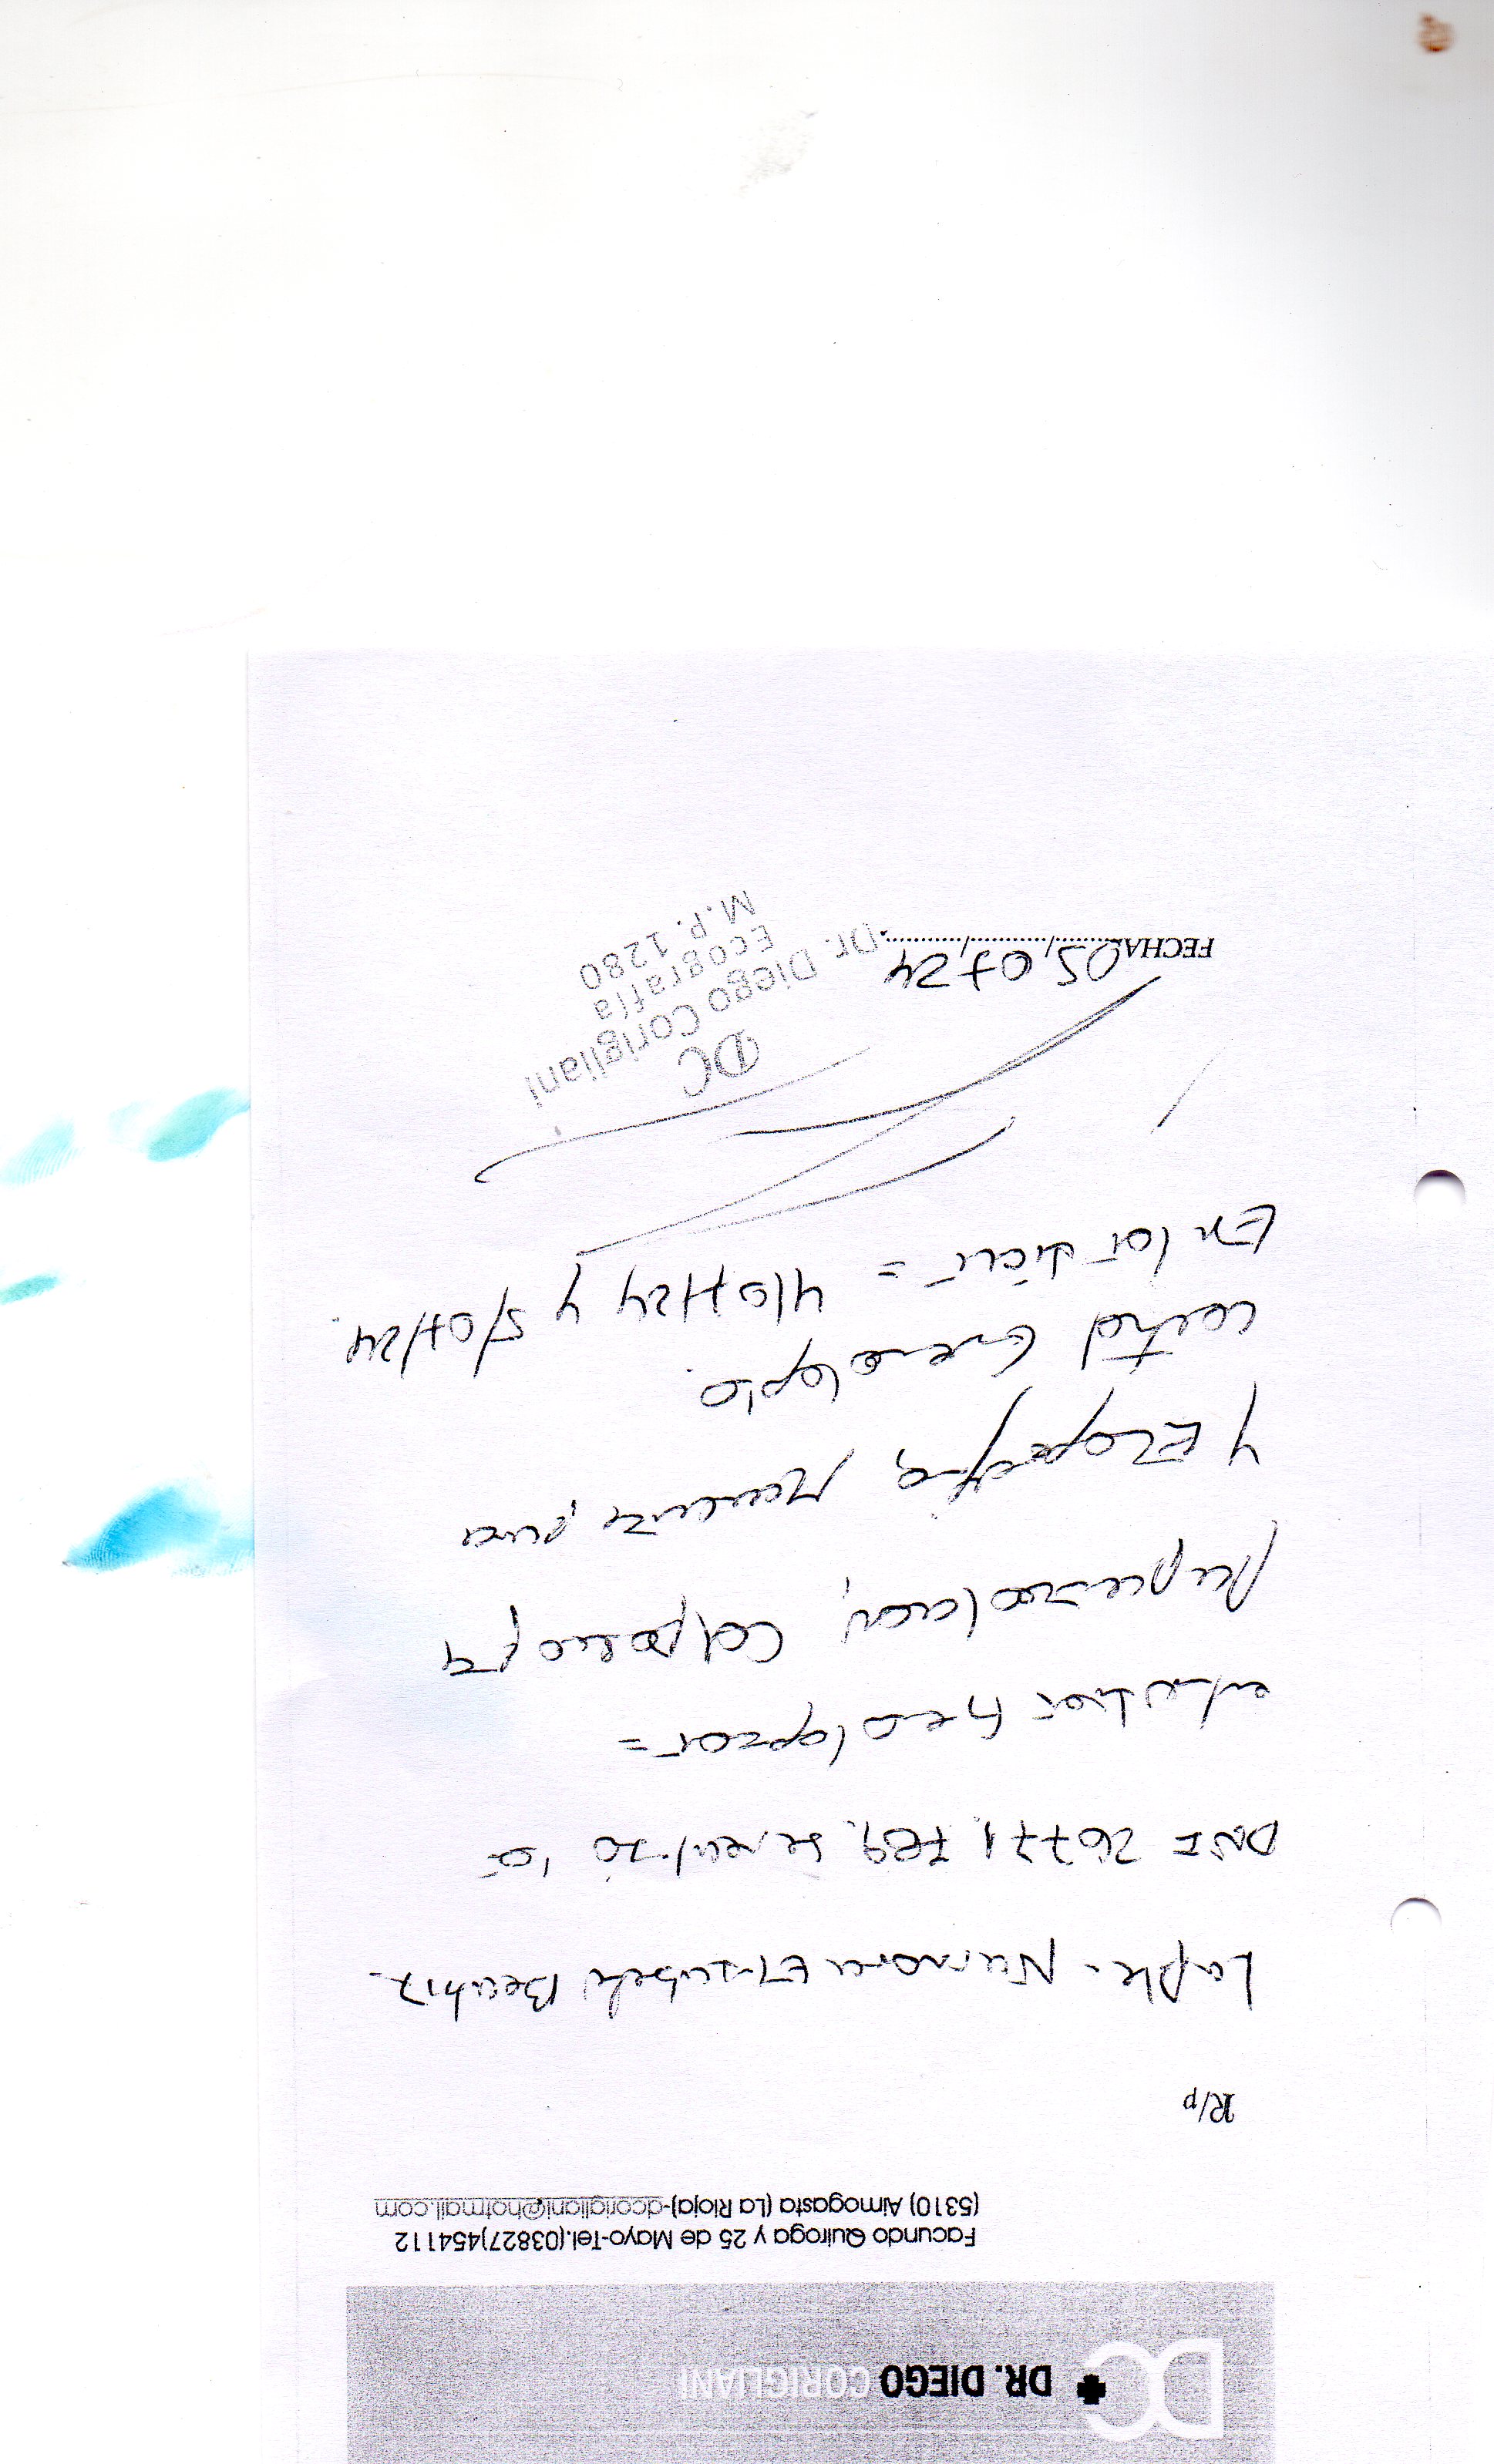 DC DR. DIEGO CORIGLIANI
Facundo Quiroga y 25 de Mayo-Tel.(03827)454112
(5310) Aimogasta (La Rioja)-dcorigliani@hotmail.com
R/p
La pte. Elizabeth Beatriz
DNI 26771789, se realizó los
estudios
Papanicolaou, Colposcopia
y Ecografía para
control Ginecológico.
En los días = 4/07/24 y 5/07/24.
DC
Dr. Diego Corigliani
Ecografía
M.P. 1280
FECHA 05/07/24